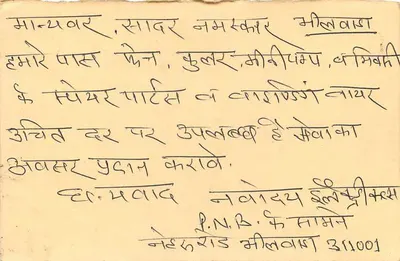 मान्यवर, सादर नमस्कार भीलवाडा
हमारे पास फेन, कुलर, मीनीपम्प, व मिक्सी
के स्पेयर पार्टस व वाईण्डिंग वायर
उचित दर पर उपलब्ध है सेवा का
अवसर प्रदान करावे.
धन्यवाद नवोदय इलैक्ट्रीकल्स
P.N.B. के सामने
नेहरू रोड भीलवाडा 311001